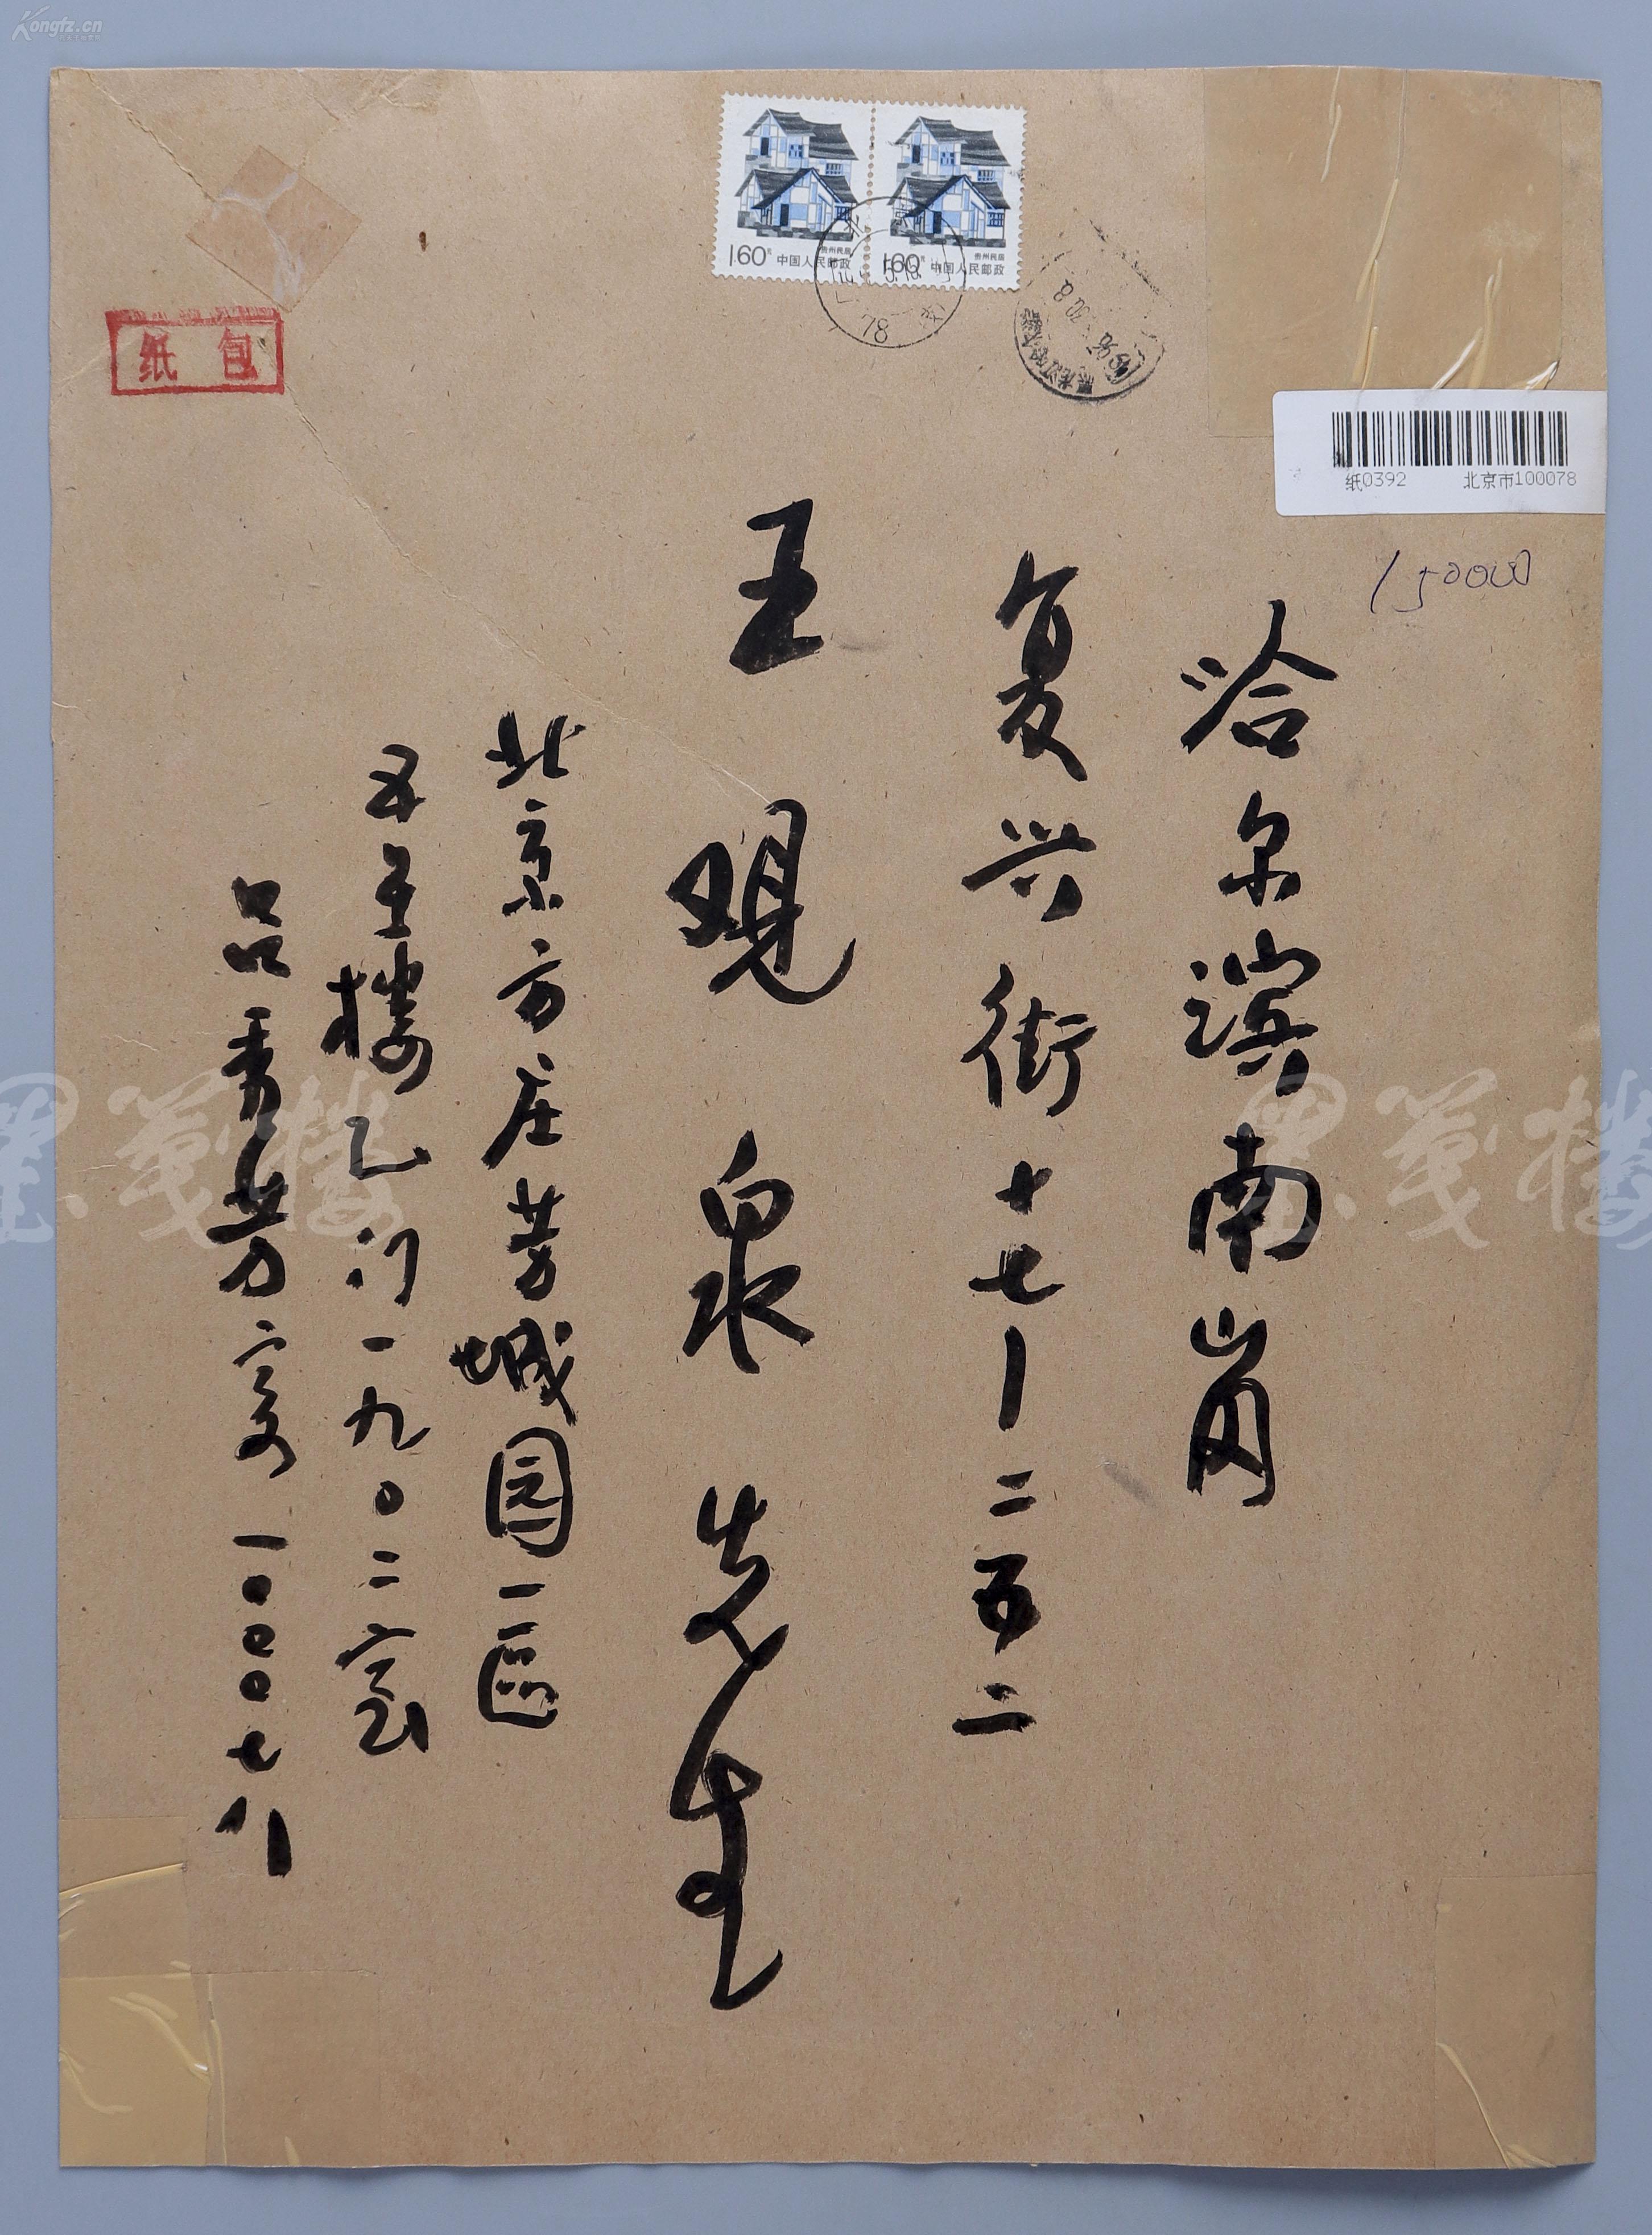 Kongfz.cn
1.60元 中国人民邮政
贵州民居
1.60元 中国人民邮政
贵州民居
纸包
纸0392 北京市100078
150000
哈尔滨南岗
复兴街十七-二五二
王观泉先生
北京方庄芳城园一区
五号楼乙门一九〇二室
吕秀芳寄 一〇〇〇七八
墨笺楼
墨笺楼